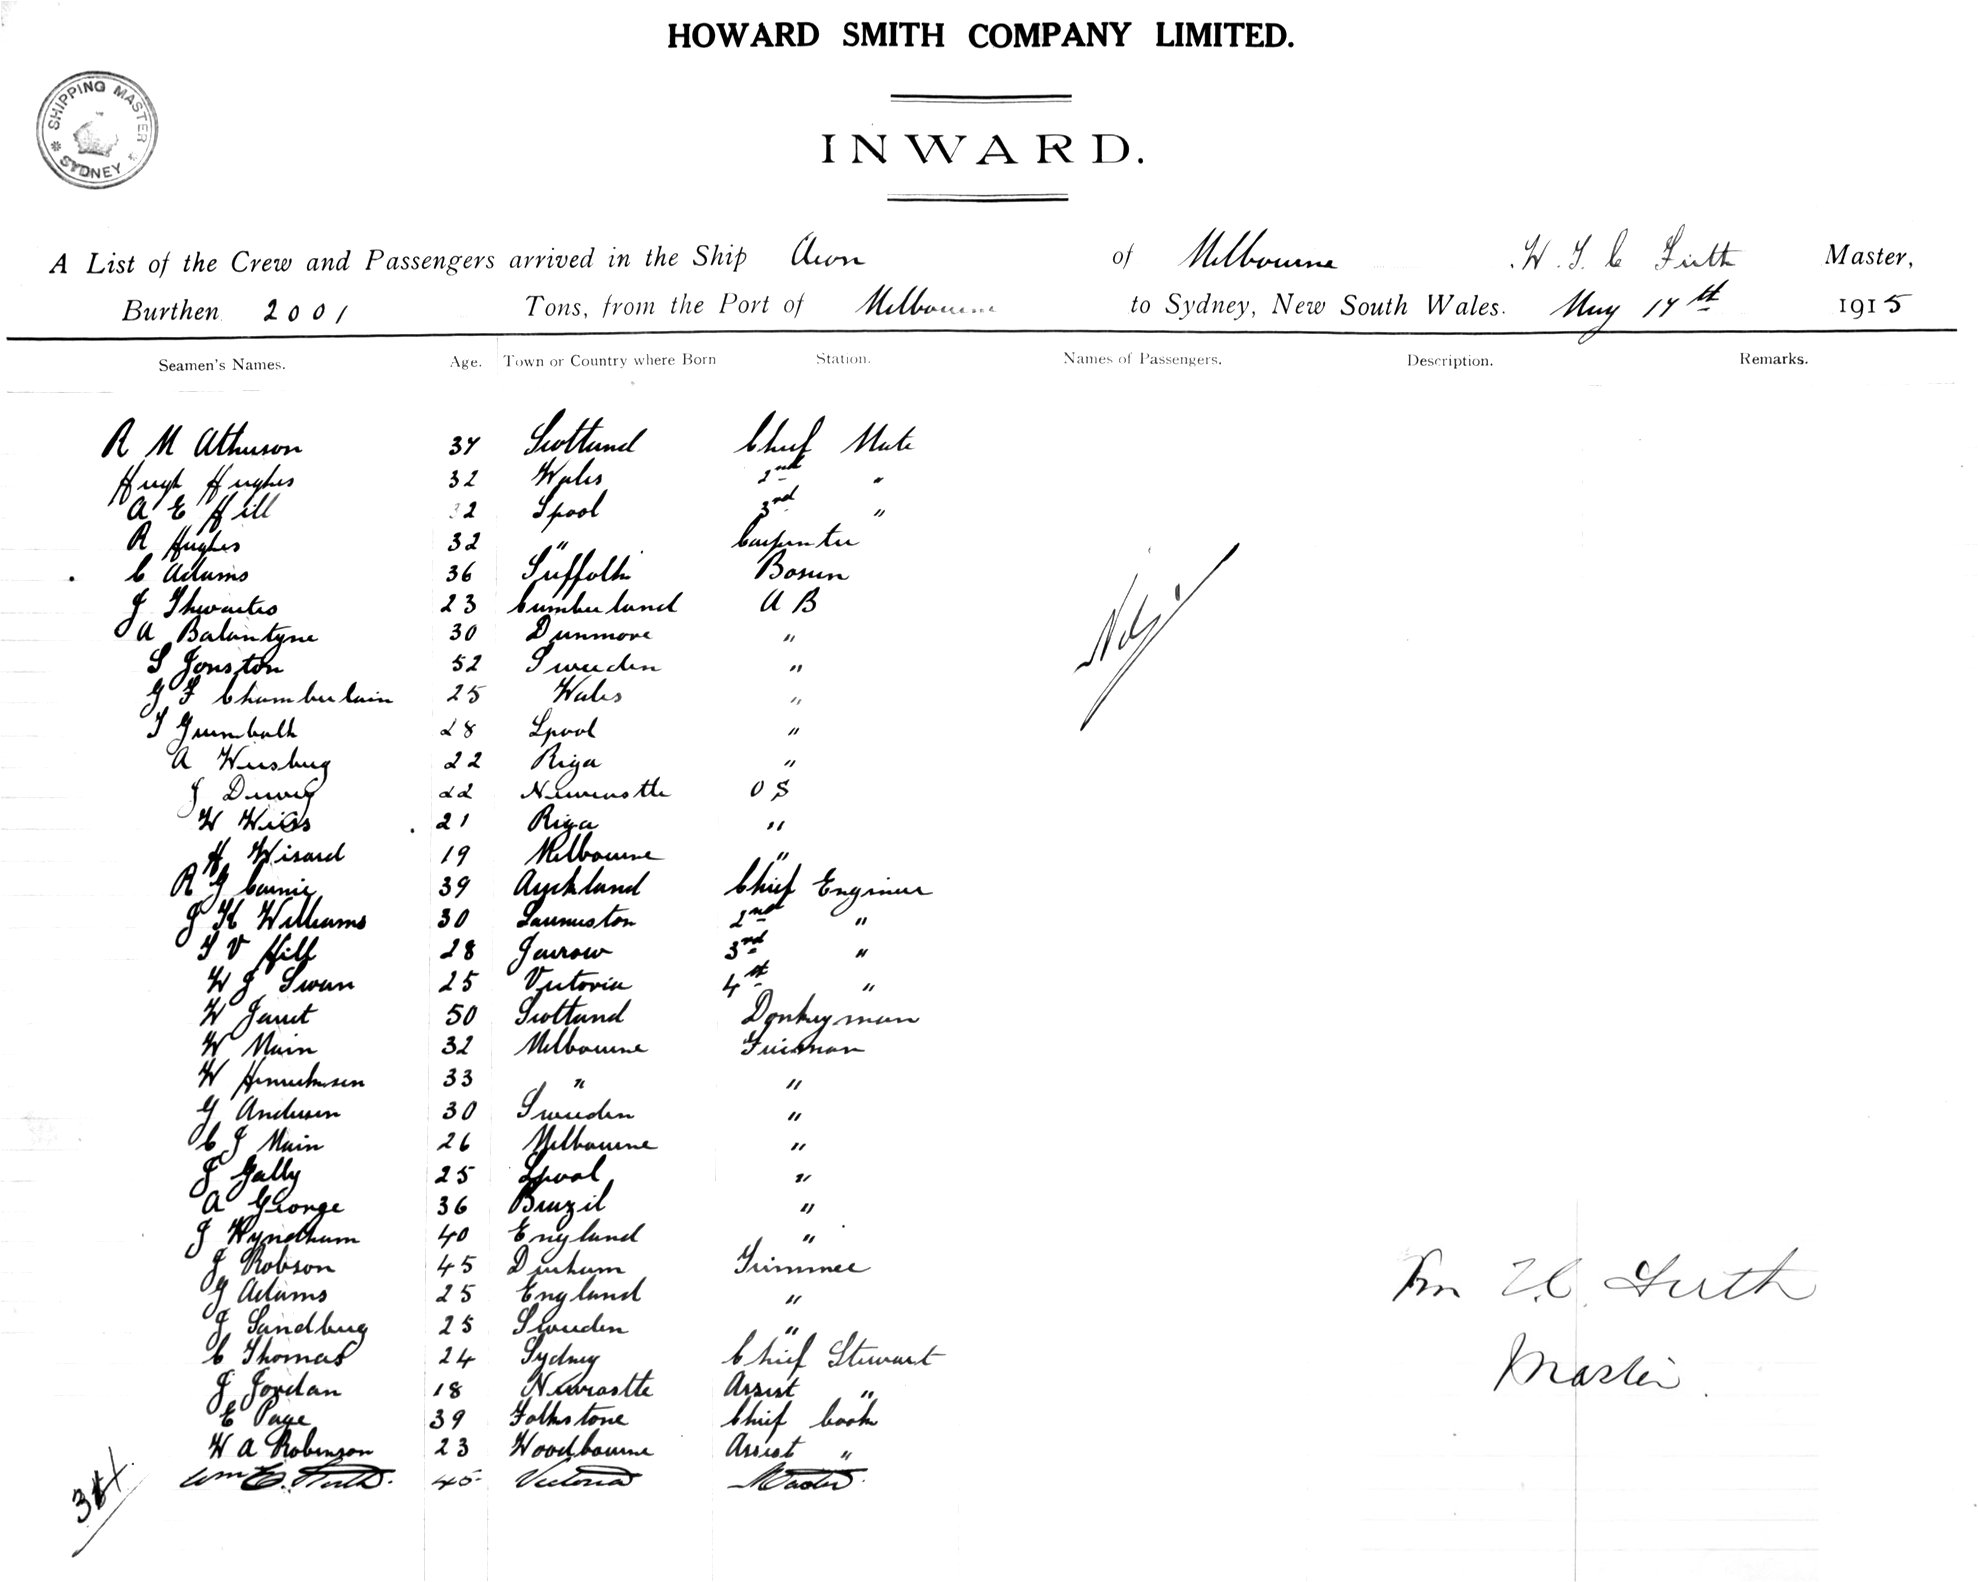 HOWARD SMITH COMPANY LIMITED.
SHIPPING MASTER SYDNEY
INWARD.
A List of the Crew and Passengers arrived in the Ship Aeon of Melbourne W. T. C Firth Master,
Burthen 2001 Tons, from the Port of Melbourne to Sydney, New South Wales. May 17th 1915
Seamen's Names. Age. Town or Country where Born Station. Names of Passengers. Description. Remarks.
R M Atkinson 37 Scotland Chief Mate
Hugh Hughes 32 Wales 2nd "
A E Hill 32 Lpool 3rd "
R Hughes 32 " Carpenter
C Adams 36 Suffolk Bosun
J Thwaites 23 Cumberland A B
A Balantyne 30 Dunmore "
S Jonston 52 Sweeden "
G F Chamberlain 25 Wales "
T Grumbalk 28 Lpool "
A Weisburg 22 Riga "
J 22 Newcastle O S
W 21 Riga "
H Wisard 19 Melbourne "
R G Cainie 39 Auckland Chief Engineer
J H Williams 30 Launceston 2nd "
T V Hill 28 Jarrow 3rd "
W J Swan 25 Victoria 4st "
W 50 Scotland Donkeyman
W Main 32 Melbourne Fireman
W 33 " "
G Andersen 30 Sweeden "
C J Main 26 Melbourne "
J Gally 25 Lpool "
A George 36 Brazil "
J Wyndham 40 England "
J Robson 45 Durham Trimmer
G Adams 25 England "
J Sandburg 25 Sweeden "
C Thomas 24 Sydney Chief Stewart
J Jordan 18 Newcastle Assist "
E Page 39 Folkstone Chief Cook
W A Robinson 23 Woodbourne Assist "
Wm C. Firth. 45 Victoria Master.
Wm T.C. Firth
Master.